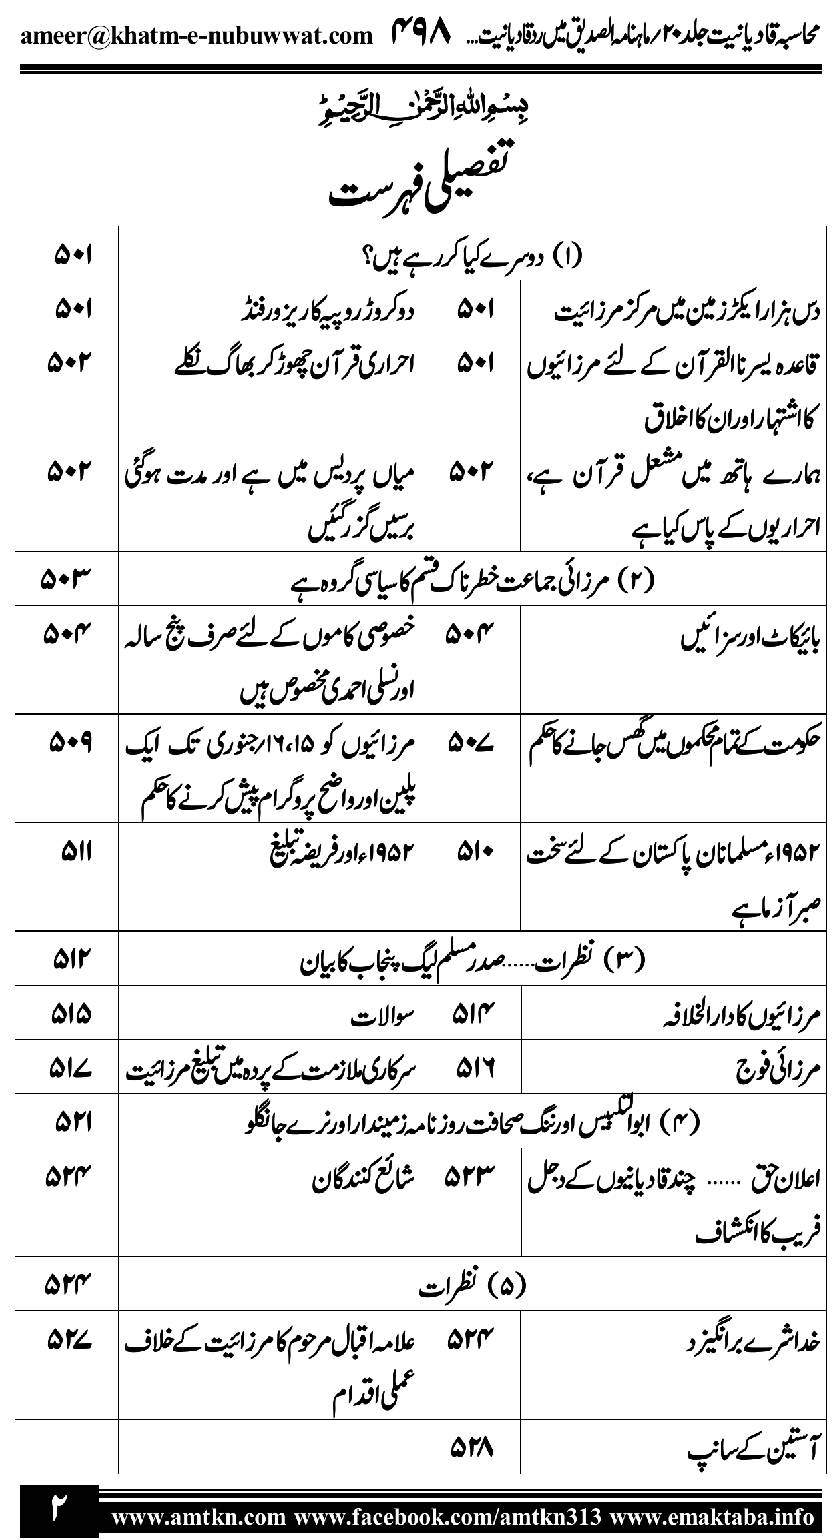 محاسبہ قادیانیت جلد ۲۰ / ماہنامہ الصدیق میں رد قادیانیت... ۴۹۸ ameer@khatm-e-nubuwwat.com
بسم اللہ الرحمن الرحیم
تفصیلی فہرست
(۱) دوسرے کیا کر رہے ہیں؟ ۵۰۱
دس ہزار ایکڑ زمین میں مرکز مرزائیت ۵۰۱ دو کروڑ روپیہ کا ریزور فنڈ ۵۰۱
قاعدہ یسرنا القرآن کے لئے مرزائیوں ۵۰۱ احراری قرآن چھوڑ کر بھاگ نکلے ۵۰۲
کا اشتہار اور ان کا اخلاق
ہمارے ہاتھ میں مشعل قرآن ہے، ۵۰۲ میاں پردیس میں ہے اور مدت ہوگئی ۵۰۲
احراریوں کے پاس کیا ہے برسیں گزر گئیں
(۲) مرزائی جماعت خطرناک قسم کا سیاسی گروہ ہے ۵۰۳
بائیکاٹ اور سزائیں ۵۰۴ خصوصی کاموں کے لئے صرف پنج سالہ ۵۰۴
اور نسلی احمدی مخصوص ہیں
حکومت کے تمام محکموں میں گھس جانے کا حکم ۵۰۷ مرزائیوں کو ۱۵، ۱۶/ جنوری تک ایک ۵۰۹
پلین اور واضح پروگرام پیش کرنے کا حکم
۱۹۵۲ء مسلمانان پاکستان کے لئے سخت ۵۱۰ ۱۹۵۲ء اور فریضہ تبلیغ ۵۱۱
صبر آزما ہے
(۳) نظرات...... صدر مسلم لیگ پنجاب کا بیان ۵۱۲
مرزائیوں کا دار الخلافہ ۵۱۴ سوالات ۵۱۵
مرزائی فوج ۵۱۶ سرکاری ملازمت کے پردہ میں تبلیغ مرزائیت ۵۱۷
(۴) ابوالتلبیس اور ننگ صحافت روزنامہ زمیندار اور نرے جانگلو ۵۲۱
اعلان حق ...... چند قادیانیوں کے دجل ۵۲۳ شائع کنندگان ۵۲۴
فریب کا انکشاف
(۵) نظرات ۵۲۴
خدا شرے برانگیزد ۵۲۴ علامہ اقبال مرحوم کا مرزائیت کے خلاف ۵۲۷
عملی اقدام
آستین کے سانپ ۵۲۸
۲ www.amtkn.com www.facebook.com/amtkn313 www.emaktaba.info